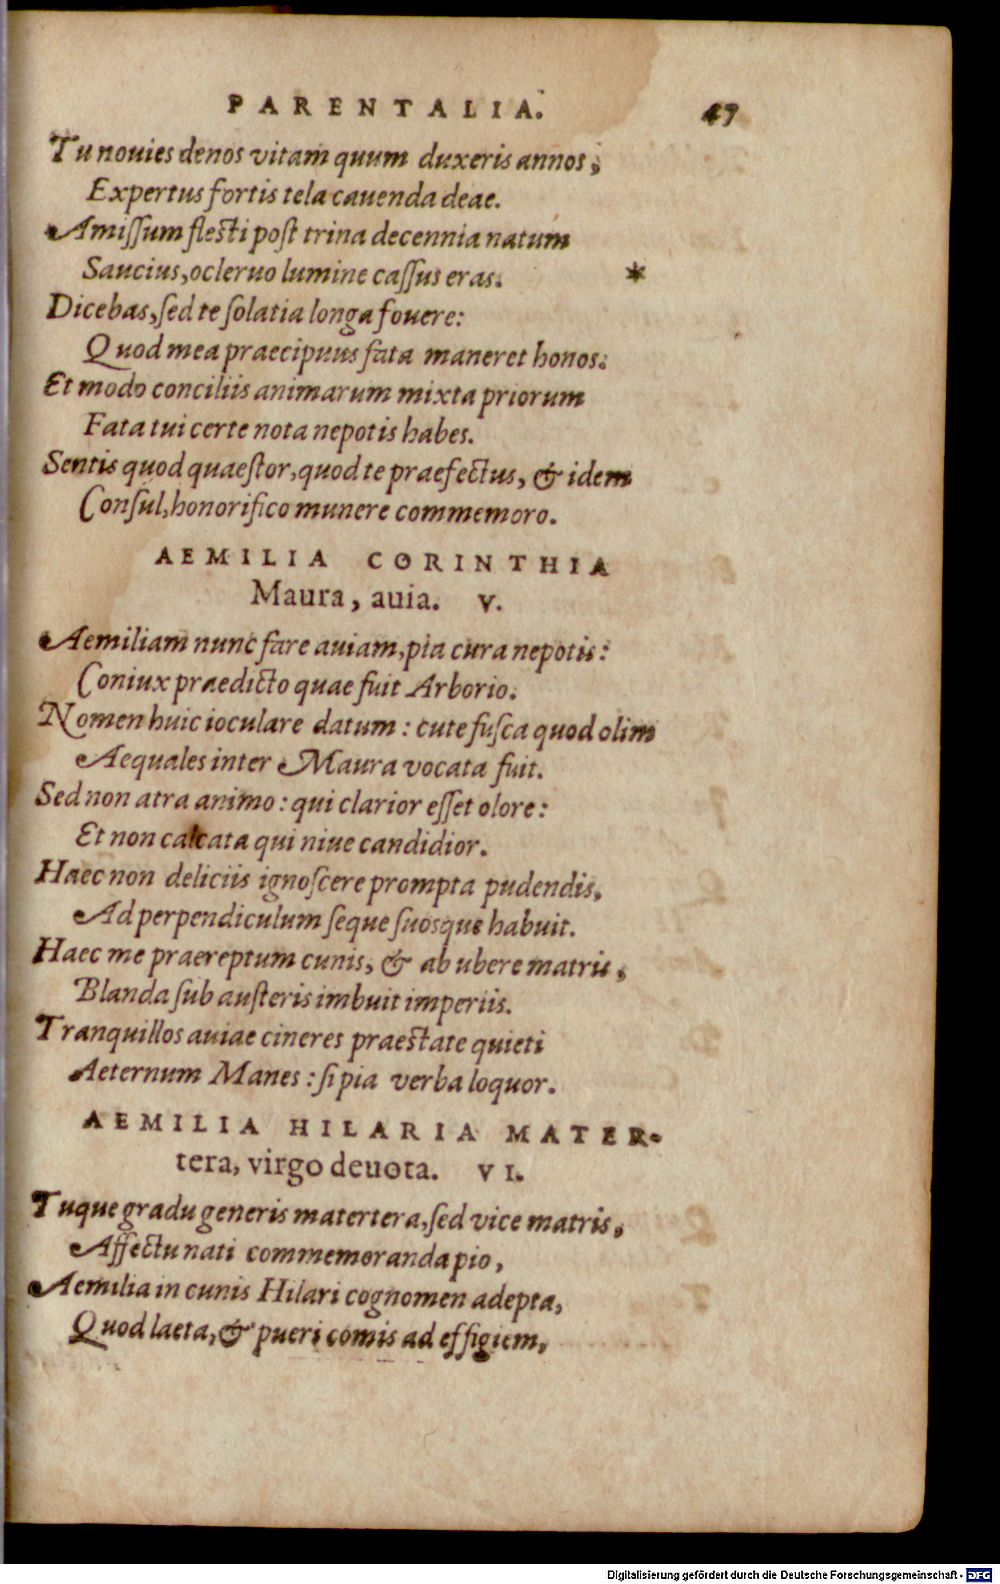 PARENTALIA. 47
Tu nouies denos vitam quum duxeris annos,
Expertus fortis tela cauenda deae.
Amiſſum fleſti poſt trina decennia natum
Saucius, ocleruo lumine caſſus eras. *
Dicebas, ſed te ſolatia longa fouere:
Quod mea praecipuus fata maneret honos.
Et modo conciliis animarum mixta priorum
Fata tui certe nota nepotis habes.
Sentis quod quaeſtor, quod te praefectus, & idem
Conſul, honorifico munere commemoro.
AEMILIA CORINTHIA
Maura, auia. V.
Aemiliam nunc fare auiam, pia cura nepotis:
Coniux praedicto quae fuit Arborio.
Nomen huic ioculare datum: cute fuſca quod olim
Aequales inter Maura vocata fuit.
Sed non atra animo: qui clarior eſſet olore:
Et non calcata qui niue candidior.
Haec non deliciis ignoſcere prompta pudendis,
Ad perpendiculum ſeque ſuosque habuit.
Haec me praereptum cunis, & ab ubere matris,
Blanda ſub auſteris imbuit imperiis.
Tranquillos auiae cineres praeſtate quieti
Aeternum Manes: ſi pia verba loquor.
AEMILIA HILARIA MATER-
tera, virgo deuota. VI.
Tuque gradu generis matertera, ſed vice matris,
Affectu nati commemoranda pio,
Aemilia in cunis Hilari cognomen adepta,
Quod laeta, & pueri comis ad effigiem,
Digitalisierung gefördert durch die Deutsche Forschungsgemeinschaft - DFG